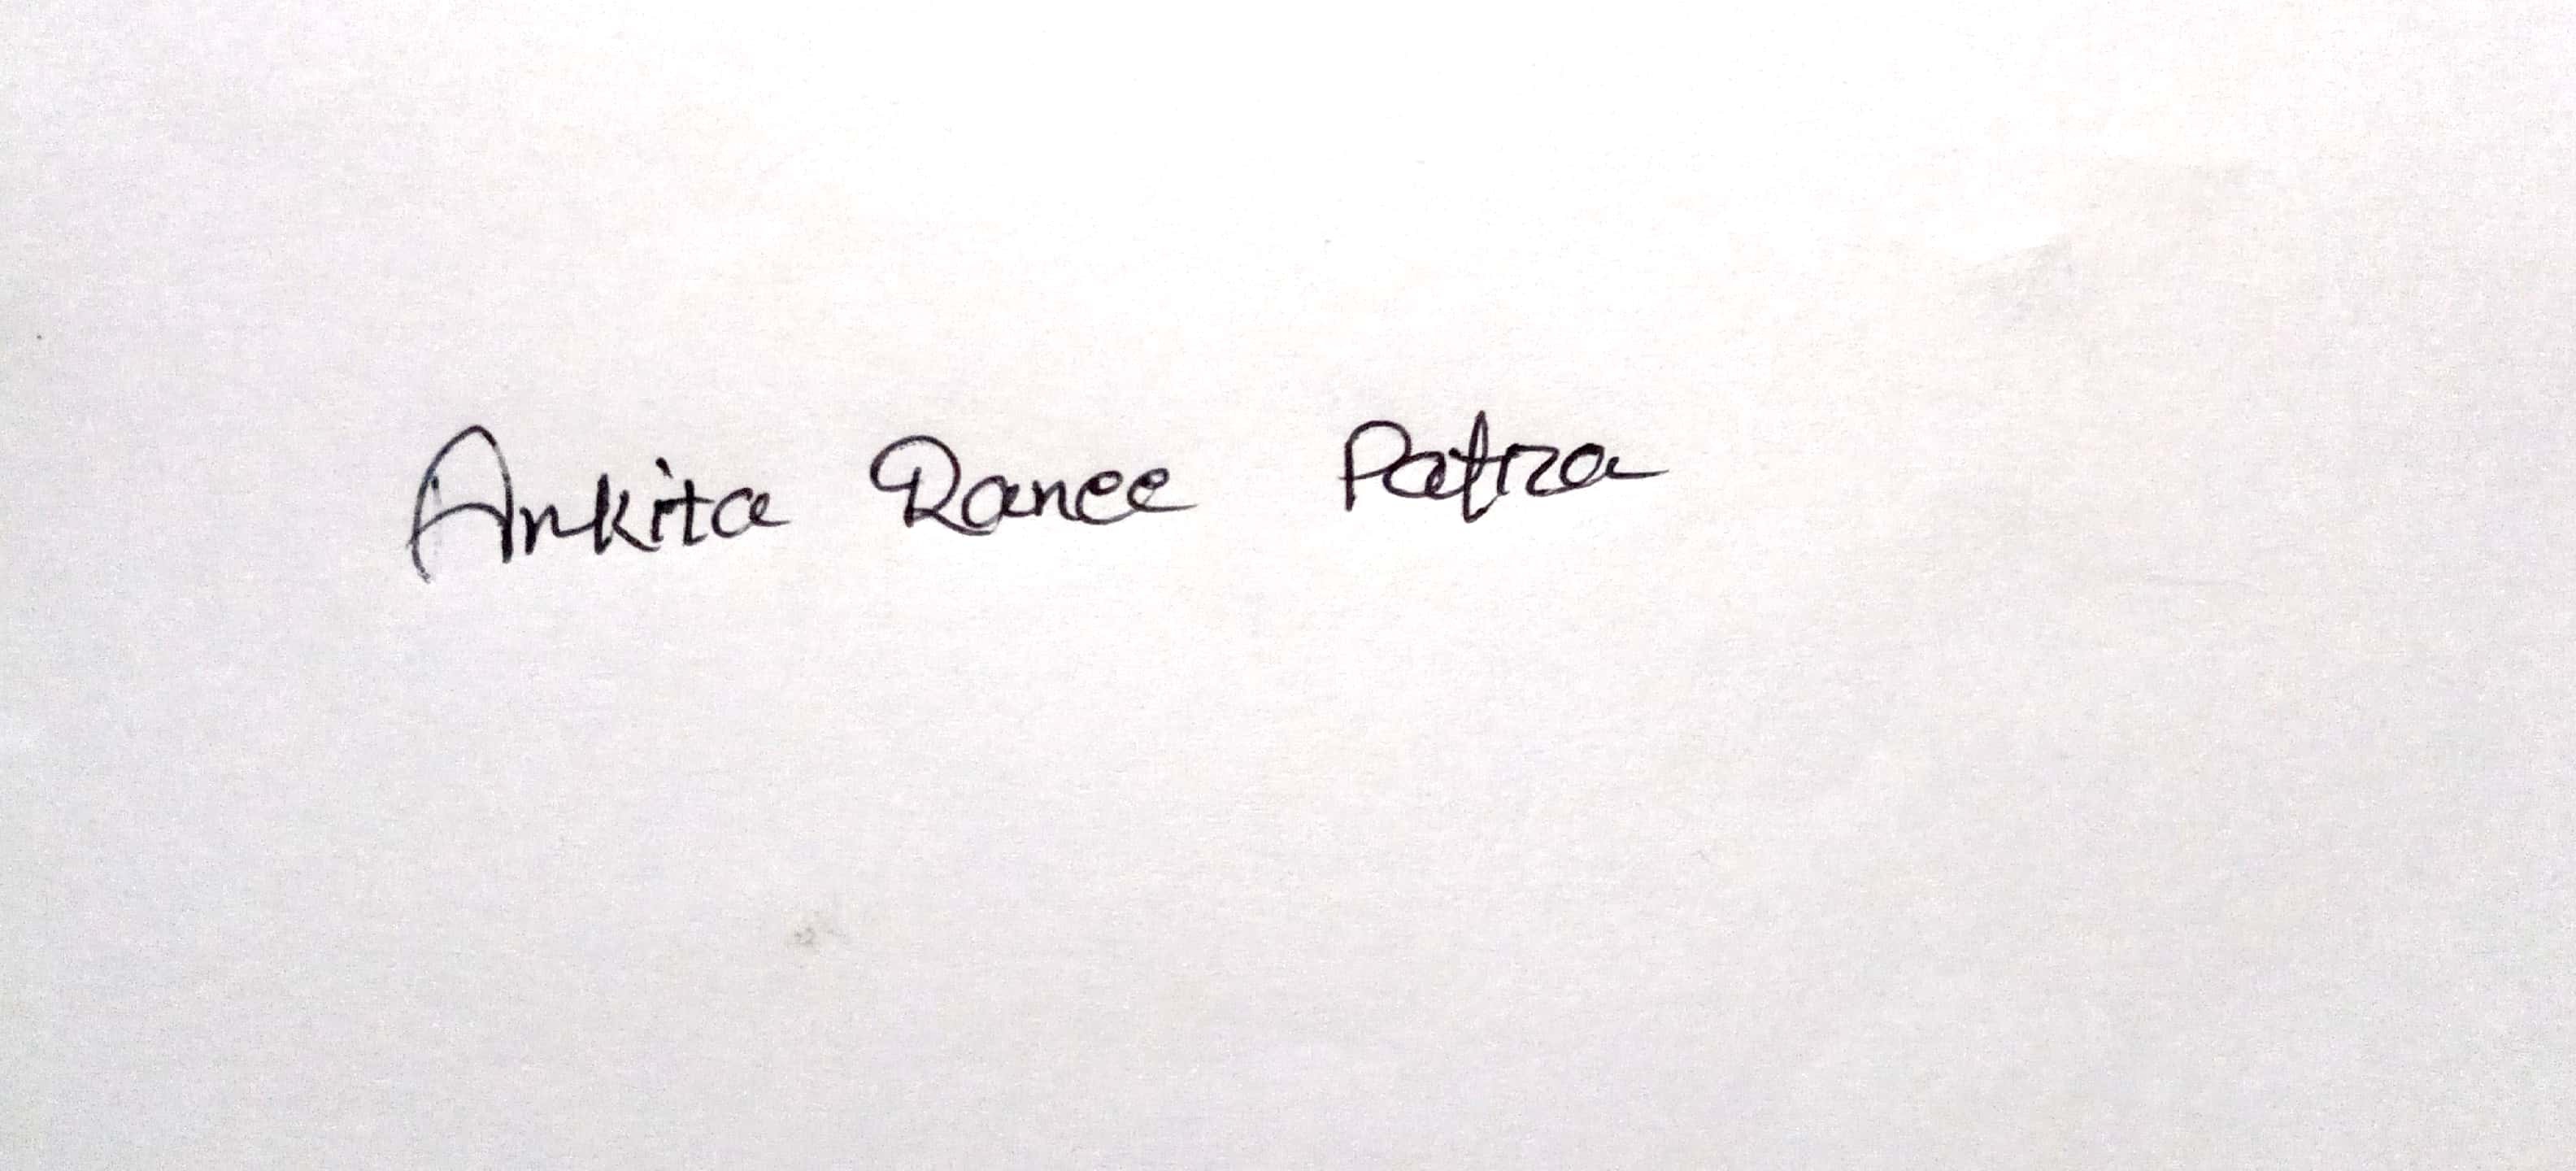 Ankita Ranee Patra